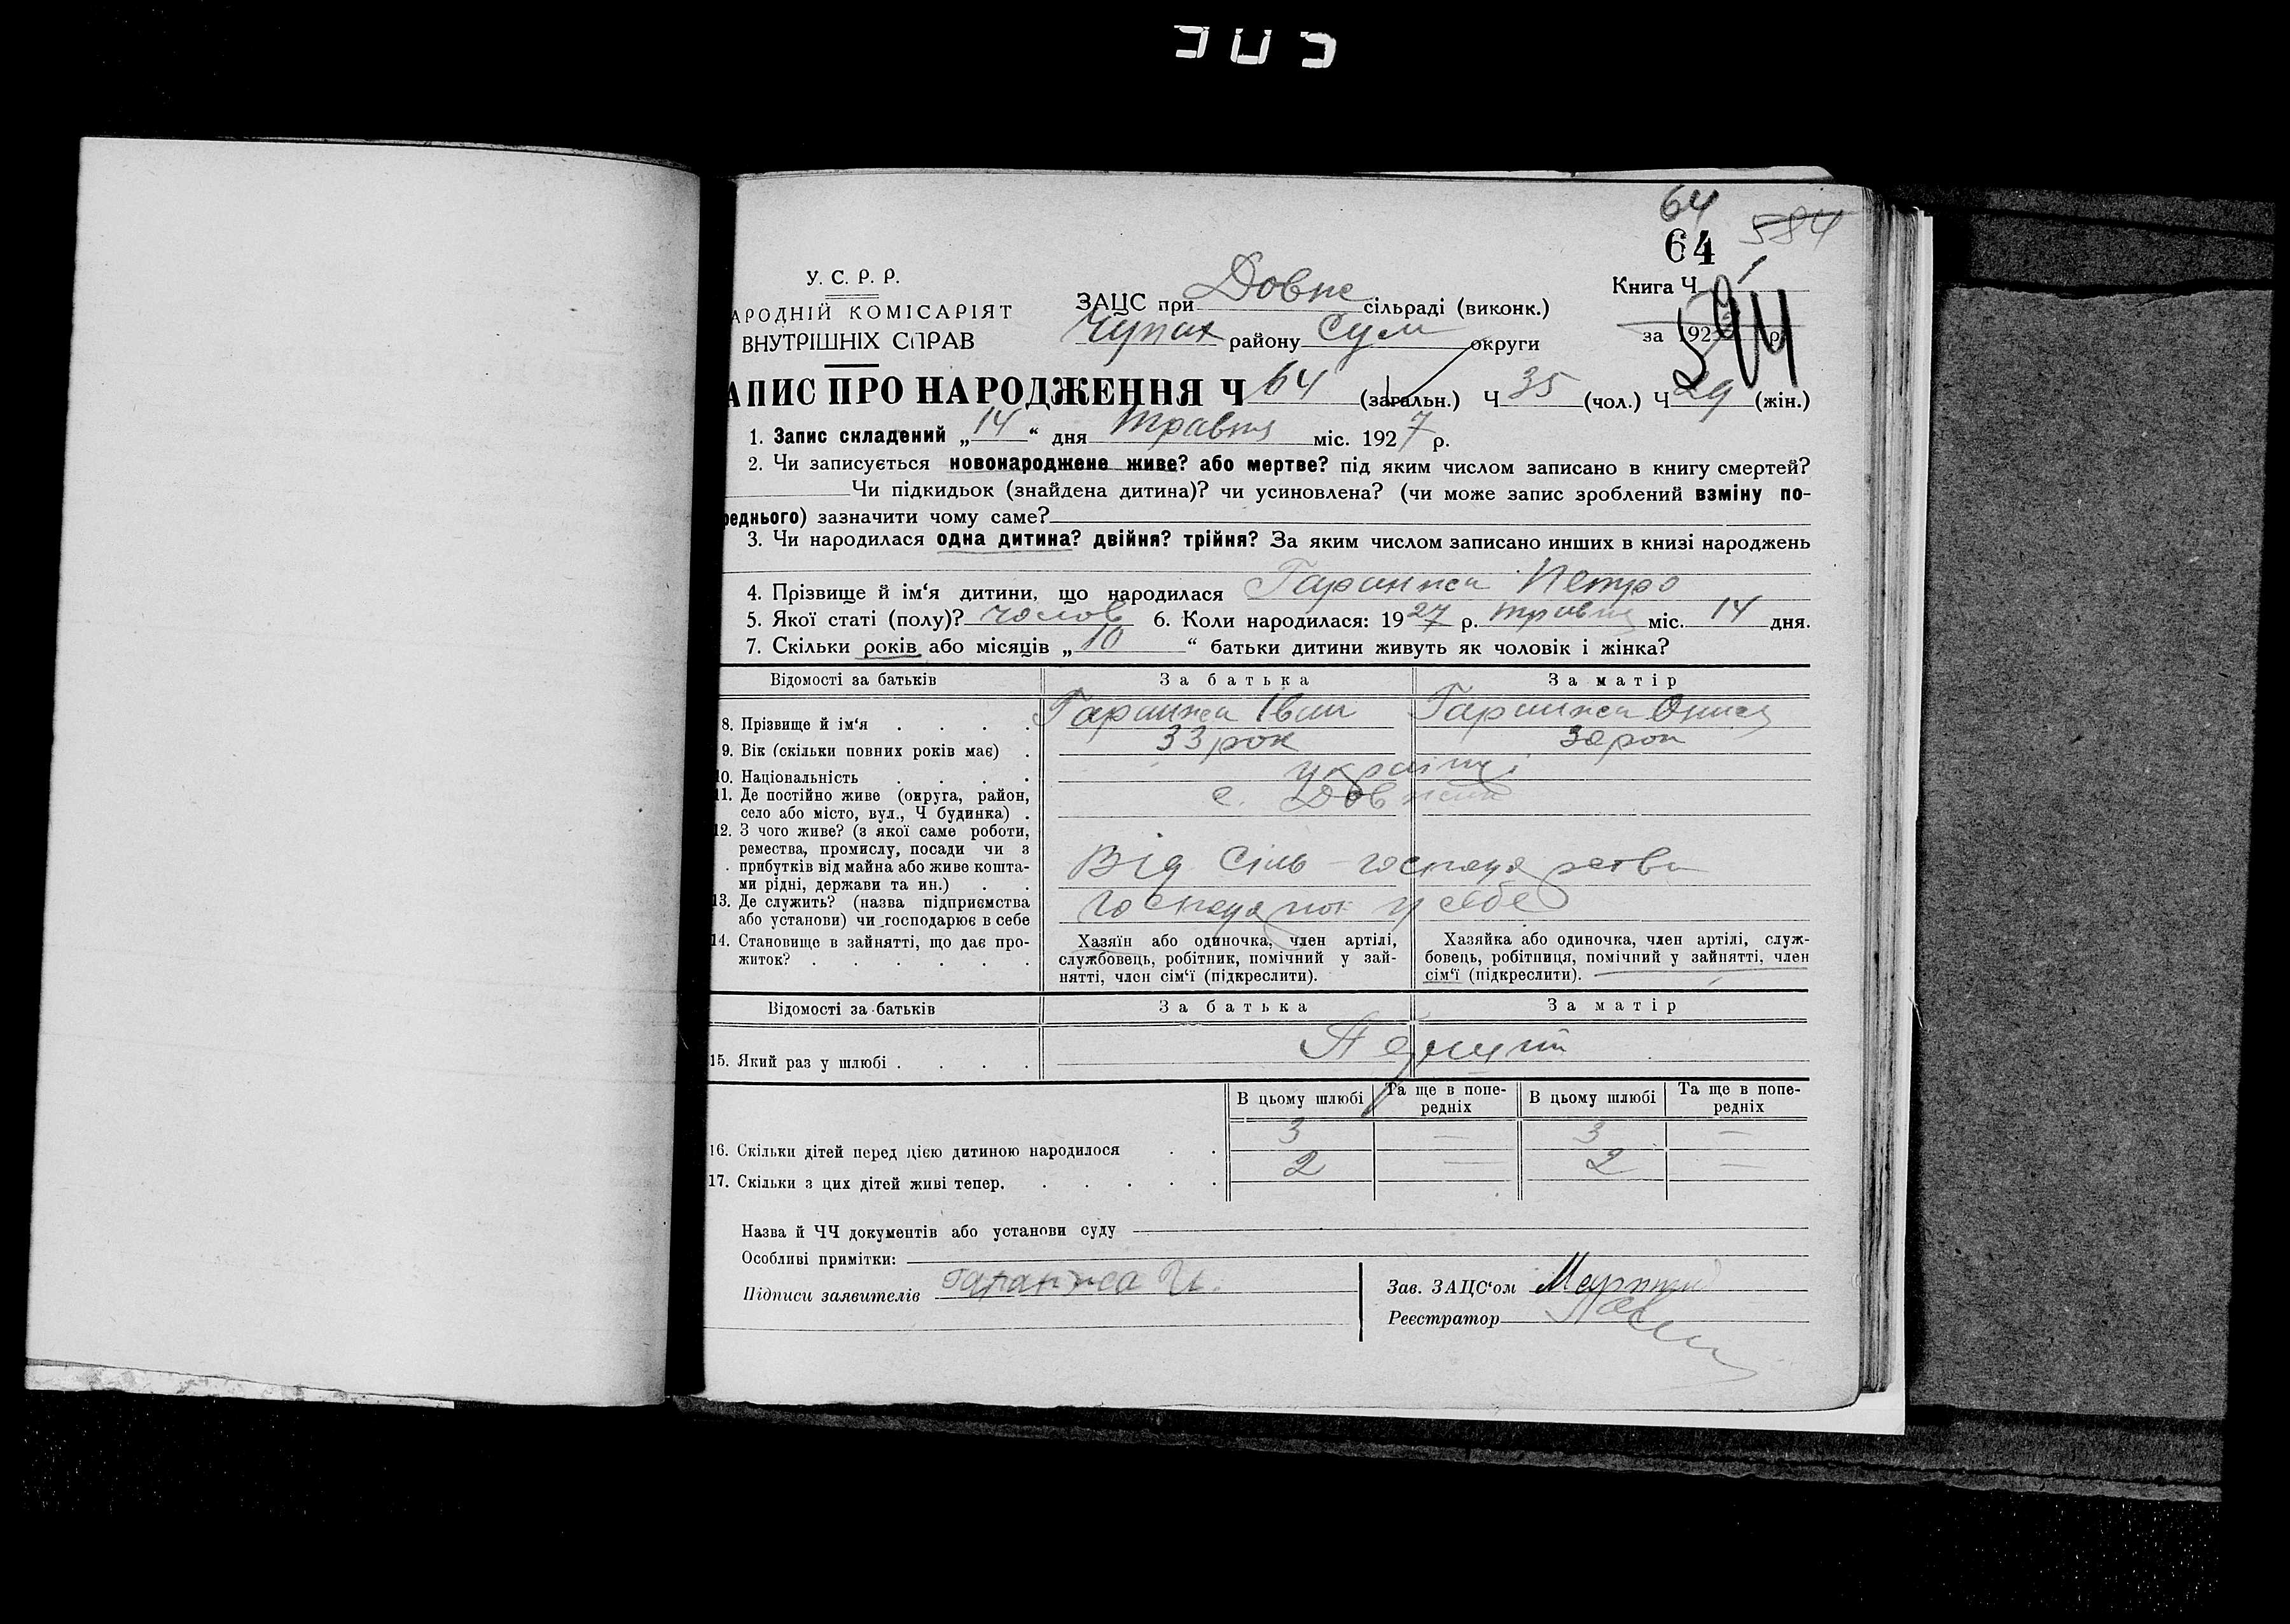 64
64 584
У. С. Р. Р.
АРОДНІЙ КОМІСАРІЯТ
ВНУТРІШНІХ СПРАВ
ЗАЦС при Довже сільраді (виконк.)
Чупах району Сум округи
Книга Ч 1
за 192 р.
594
АПИС ПРО НАРОДЖЕННЯ Ч 64 (загальн.) Ч 35 (чол.) Ч 29 (жін.)
1. Запис складений „14“ дня травня міс. 1927 р.
2. Чи записується новонароджене живе? або мертве? під яким числом записано в книгу смертей?
Чи підкидьок (знайдена дитина)? чи усиновлена? (чи може запис зроблений взміну по-
реднього) зазначити чому саме?
3. Чи народилася одна дитина? двійня? трійня? За яким числом записано инших в книзі народжень
4. Прізвище й ім‘я дитини, що народилася Гаранжа Петро
5. Якої статі (полу)? чолов 6. Коли народилася: 1927 р. травня міс. 14 дня.
7. Скільки років або місяців „10“ батьки дитини живуть як чоловік і жінка?
Відомості за батьків За батька За матір
8. Прізвище й ім‘я . . . . Гаранжа Іван Гаранжа Онися
9. Вік (скільки повних років має) . 33 рок 30 рок
10. Національність . . . . українці
11. Де постійно живе (округа, район,
село або місто, вул., Ч будинка) . с. Довжик
12. З чого живе? (з якої саме роботи,
ремества, промислу, посади чи з
прибутків від майна або живе кошта-
ми рідні, держави та ин.) . . Від Сіль-господарства
13. Де служить? (назва підприємства
або установи) чи господарює в себе у себе
14. Становище в зайнятті, що дає про-
житок? . . . . . .
Хазяїн або одиночка, член артілі,
службовець, робітник, помічний у зай-
нятті, член сім‘ї (підкреслити).
Хазяйка або одиночка, член артілі, служ-
бовець, робітниця, помічний у зайнятті, член
сім‘ї (підкреслити).
Відомості за батьків За батька За матір
15. Який раз у шлюбі . . . .
В цьому шлюбі Та ще в попе-
редніх В цьому шлюбі Та ще в попе-
редніх
16. Скільки дітей перед цією дитиною народилося . . 3 — 3 —
17. Скільки з цих дітей живі тепер. . . . . . 2 — 2 —
Назва й ЧЧ документів або установи суду
Особливі примітки:
Підписи заявителів Гаранжа И.
Зав. ЗАЦС‘ом
Реєстратор